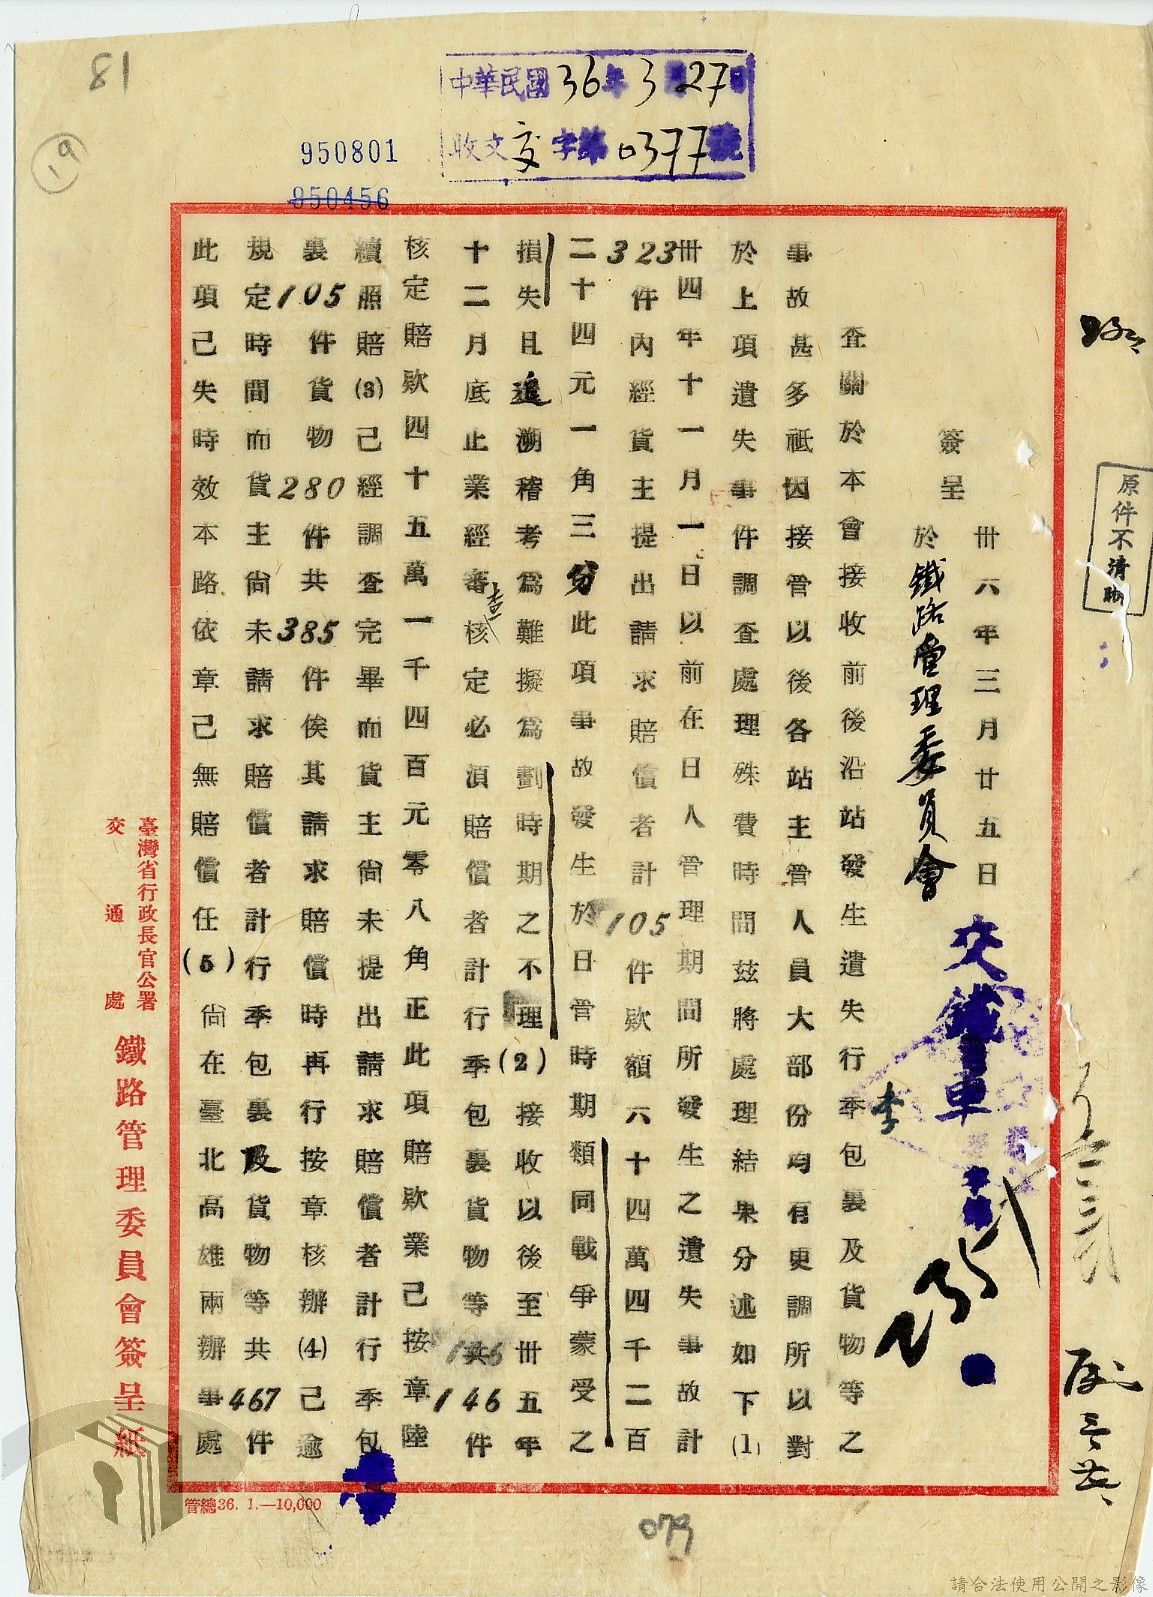 81
19
中華民國36年3月27日
收文交字第0377號
950801
950456
原件不清晰
簽呈
卅六年三月廿五日
於鐵路管理委員會
查關於本會接收前後沿站發生遺失行李包裹及貨物等之
事故甚多祇因接管以後各站主管人員大部份均有更調所以對
於上項遺失事件調查處理殊費時間茲將處理結果分述如下(1)
卅四年十一月一日以前在日人管理期間所發生之遺失事故計
323件內經貨主提出請求賠償者計105件欵額六十四萬四千二百
二十四元一角三分此項事故發生於日管時期類同戰爭蒙受之
損失且追溯稽考爲難擬爲劃時期之不理(2)接收以後至卅五年
十二月底止業經審查核定必須賠償者計行李包裹貨物等共146件
核定賠欵四十五萬一千四百元零八角正此項賠欵業己按章陸
續照賠(3)己經調查完畢而貨主尙未提出請求賠償者計行李包
裹105件貨物280件共385件俟其請求賠償時再行按章核辦(4)己逾
規定時間而貨主尙未請求賠償者計行李包裹及貨物等共467件
此項己失時效本路依章己無賠償任(5)尙在臺北高雄兩辦事處
臺灣省行政長官公署
交通處
鐵路管理委員會簽呈紙
管總36. 1.—10,000
079
請合法使用公開之影像